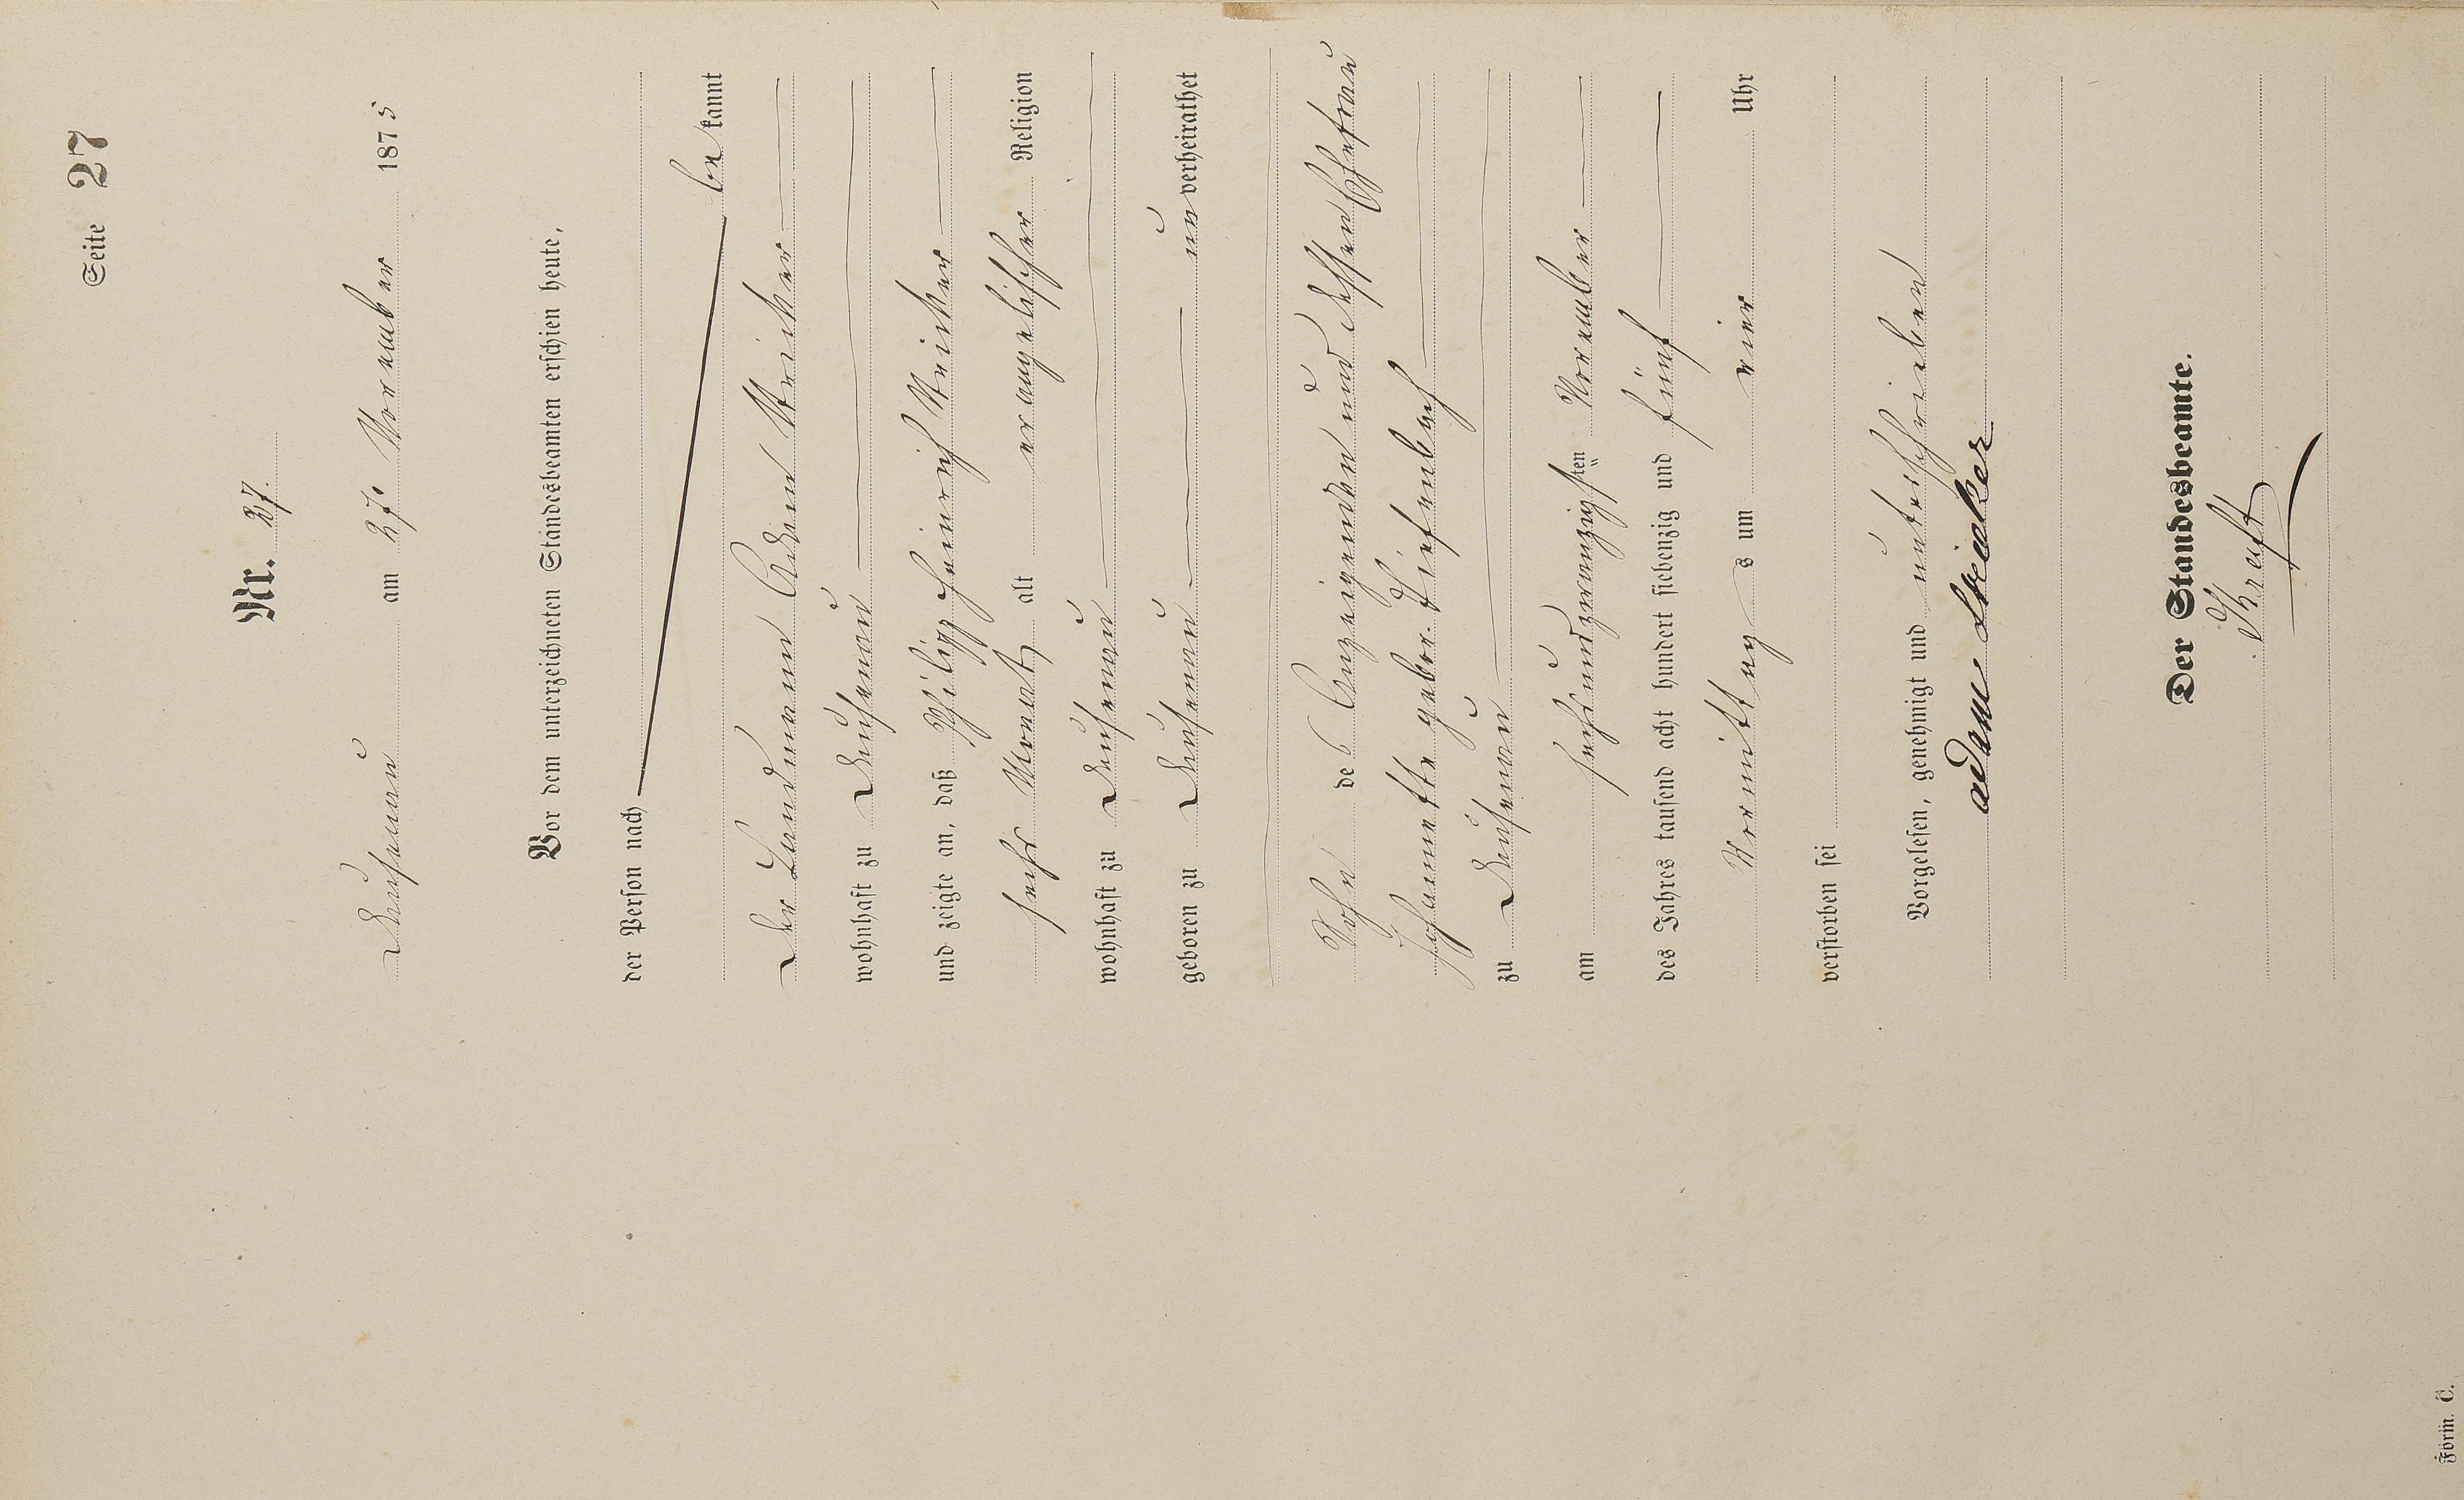 Seite 27
Nr. 27.
Dausenau am 27. November 1875
Vor dem unterzeichneten Standesbeamten erschien heute,
der Person nach
bekannt
der Landmann Adam Stricker
wohnhaft zu Dausenau
und zeigte an, daß Philipp Heinrich Stricker
sechs Monat alt evangelischer Religion
wohnhaft zu Dausenau
geboren zu Dausenau unverheirathet
Sohn des Anzeigenden und dessen Ehefrau
Johannette gebor. Diefenbach
zu Dausenau
am sechsundzwanzigsten November
des Jahres tausend acht hundert siebenzig und fünf
Vormittags um vier Uhr
verstorben sei
Vorgelesen, genehmigt und unterschrieben
adam Stricker
Der Standesbeamte.
Form. C.